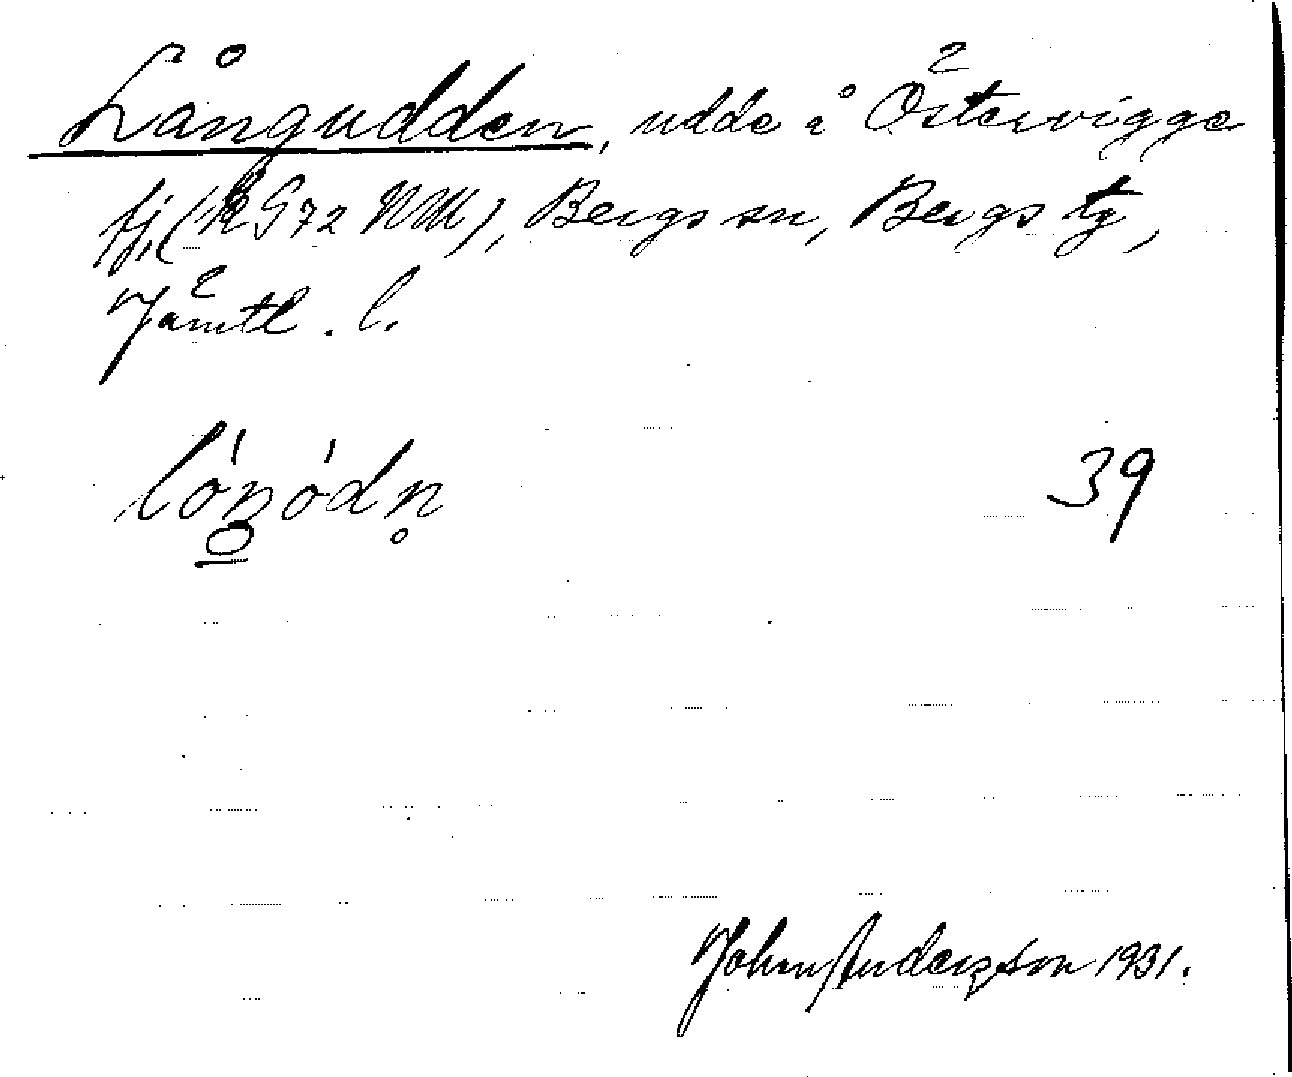 Långudden, udde i Östervigge
fj. (RG72 NM), Bergs sn, Bergs tg,
Jämtl. l.
39
John Anderzson 1931.